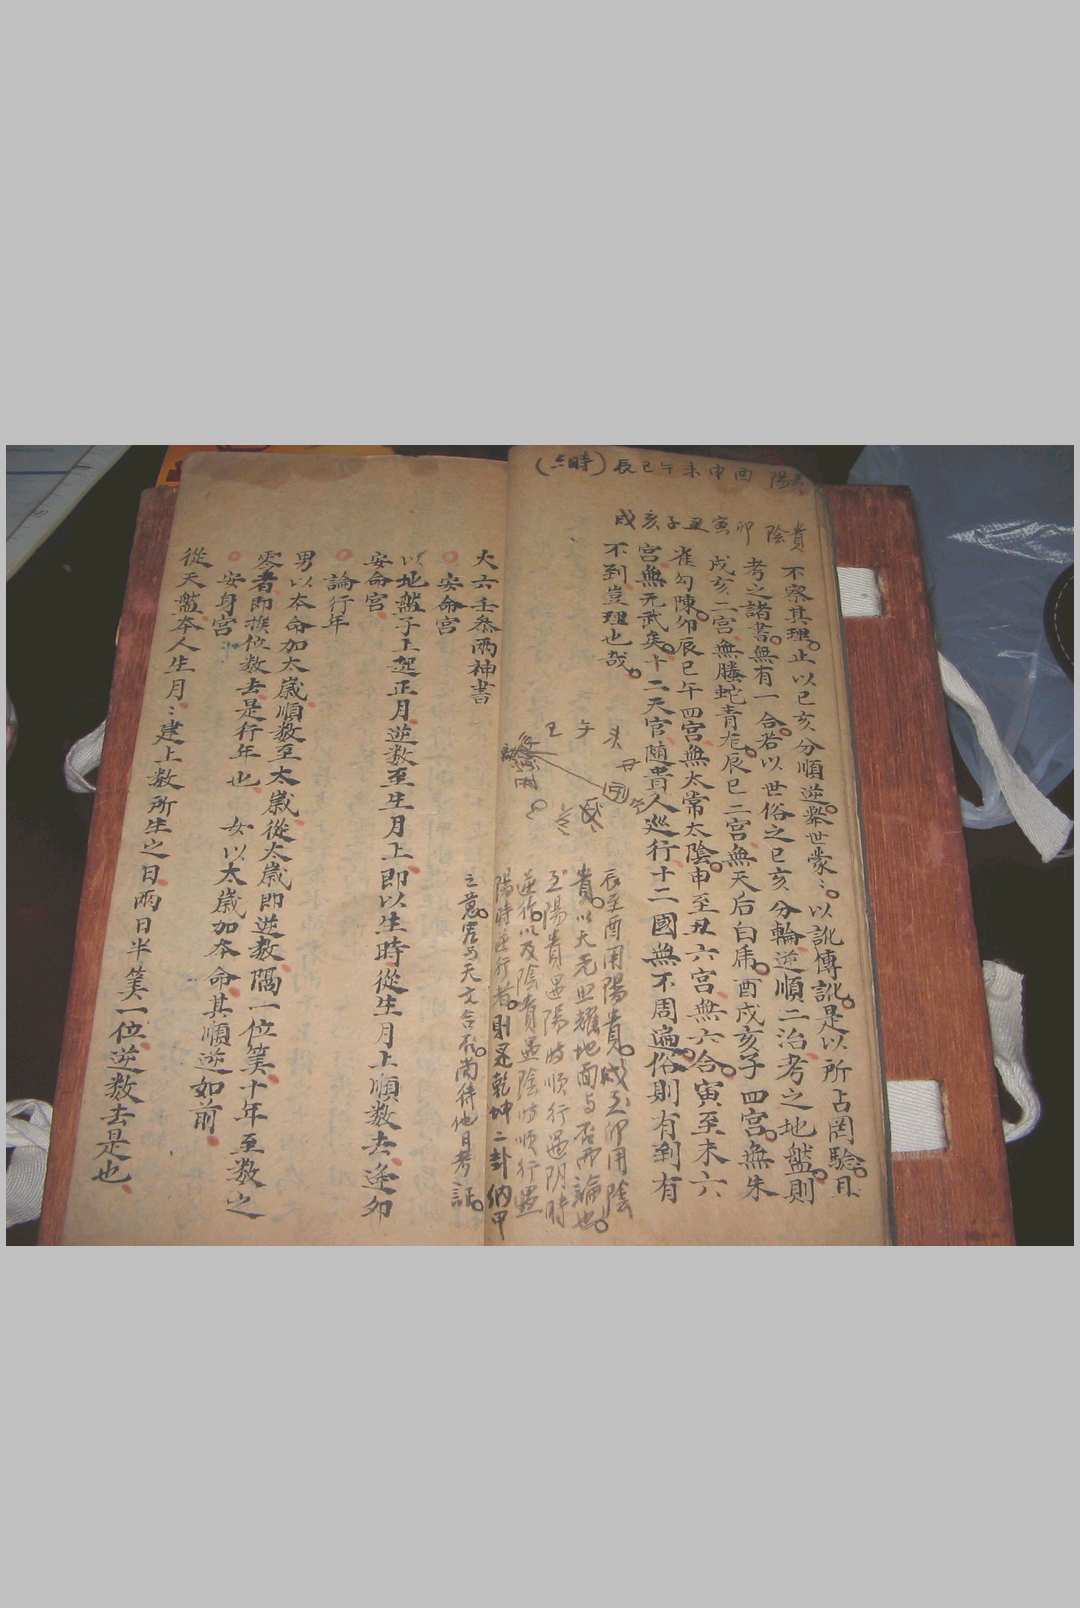 陽 酉申未午巳辰（時六）
貴陰 卯寅丑子亥戌
不察其理。止以巳亥分順逆。舉世蒙:。以訛傳訛。是以所占罔驗。且
考之諸書。無有一合。若以世俗之巳亥分輪逆順二治考之地盤。則
戌亥二宮無螣蛇青龙。辰巳二宮無天后白虎。酉戌亥子四宮。無朱
雀勾陳。卯辰巳午四宮無太常太陰。申至丑六宮無六合。寅至未六
宮無元武矣。十二天官隨貴人巡行十二國無不周遍。俗則有到有
不到豈理也哉。
辰至酉用陽貴。戌至卯用陰
貴。以天光旦耀地面与否而論也。
至陽貴遇陽时順行遇阴时
逆行。以及陰貴遇陰时順行遇
陽時逆行者。則是乾坤二卦納甲
之意。究与天文合否。尚待他日考証。
大六壬叅兩神書
安命宮
以地盤子上起正月逆数至生月上即以生時從生月上順数去逢卯
安命宮
論行年
男以本命加太歲順数至太歲從太歲即逆数隔一位筭十年至数之
零者即挨位数去是行年也 女以太歲加本命其順逆如前
安身宮
從天盤本人生月:建上数所生之日兩日半筭一位逆数去是也